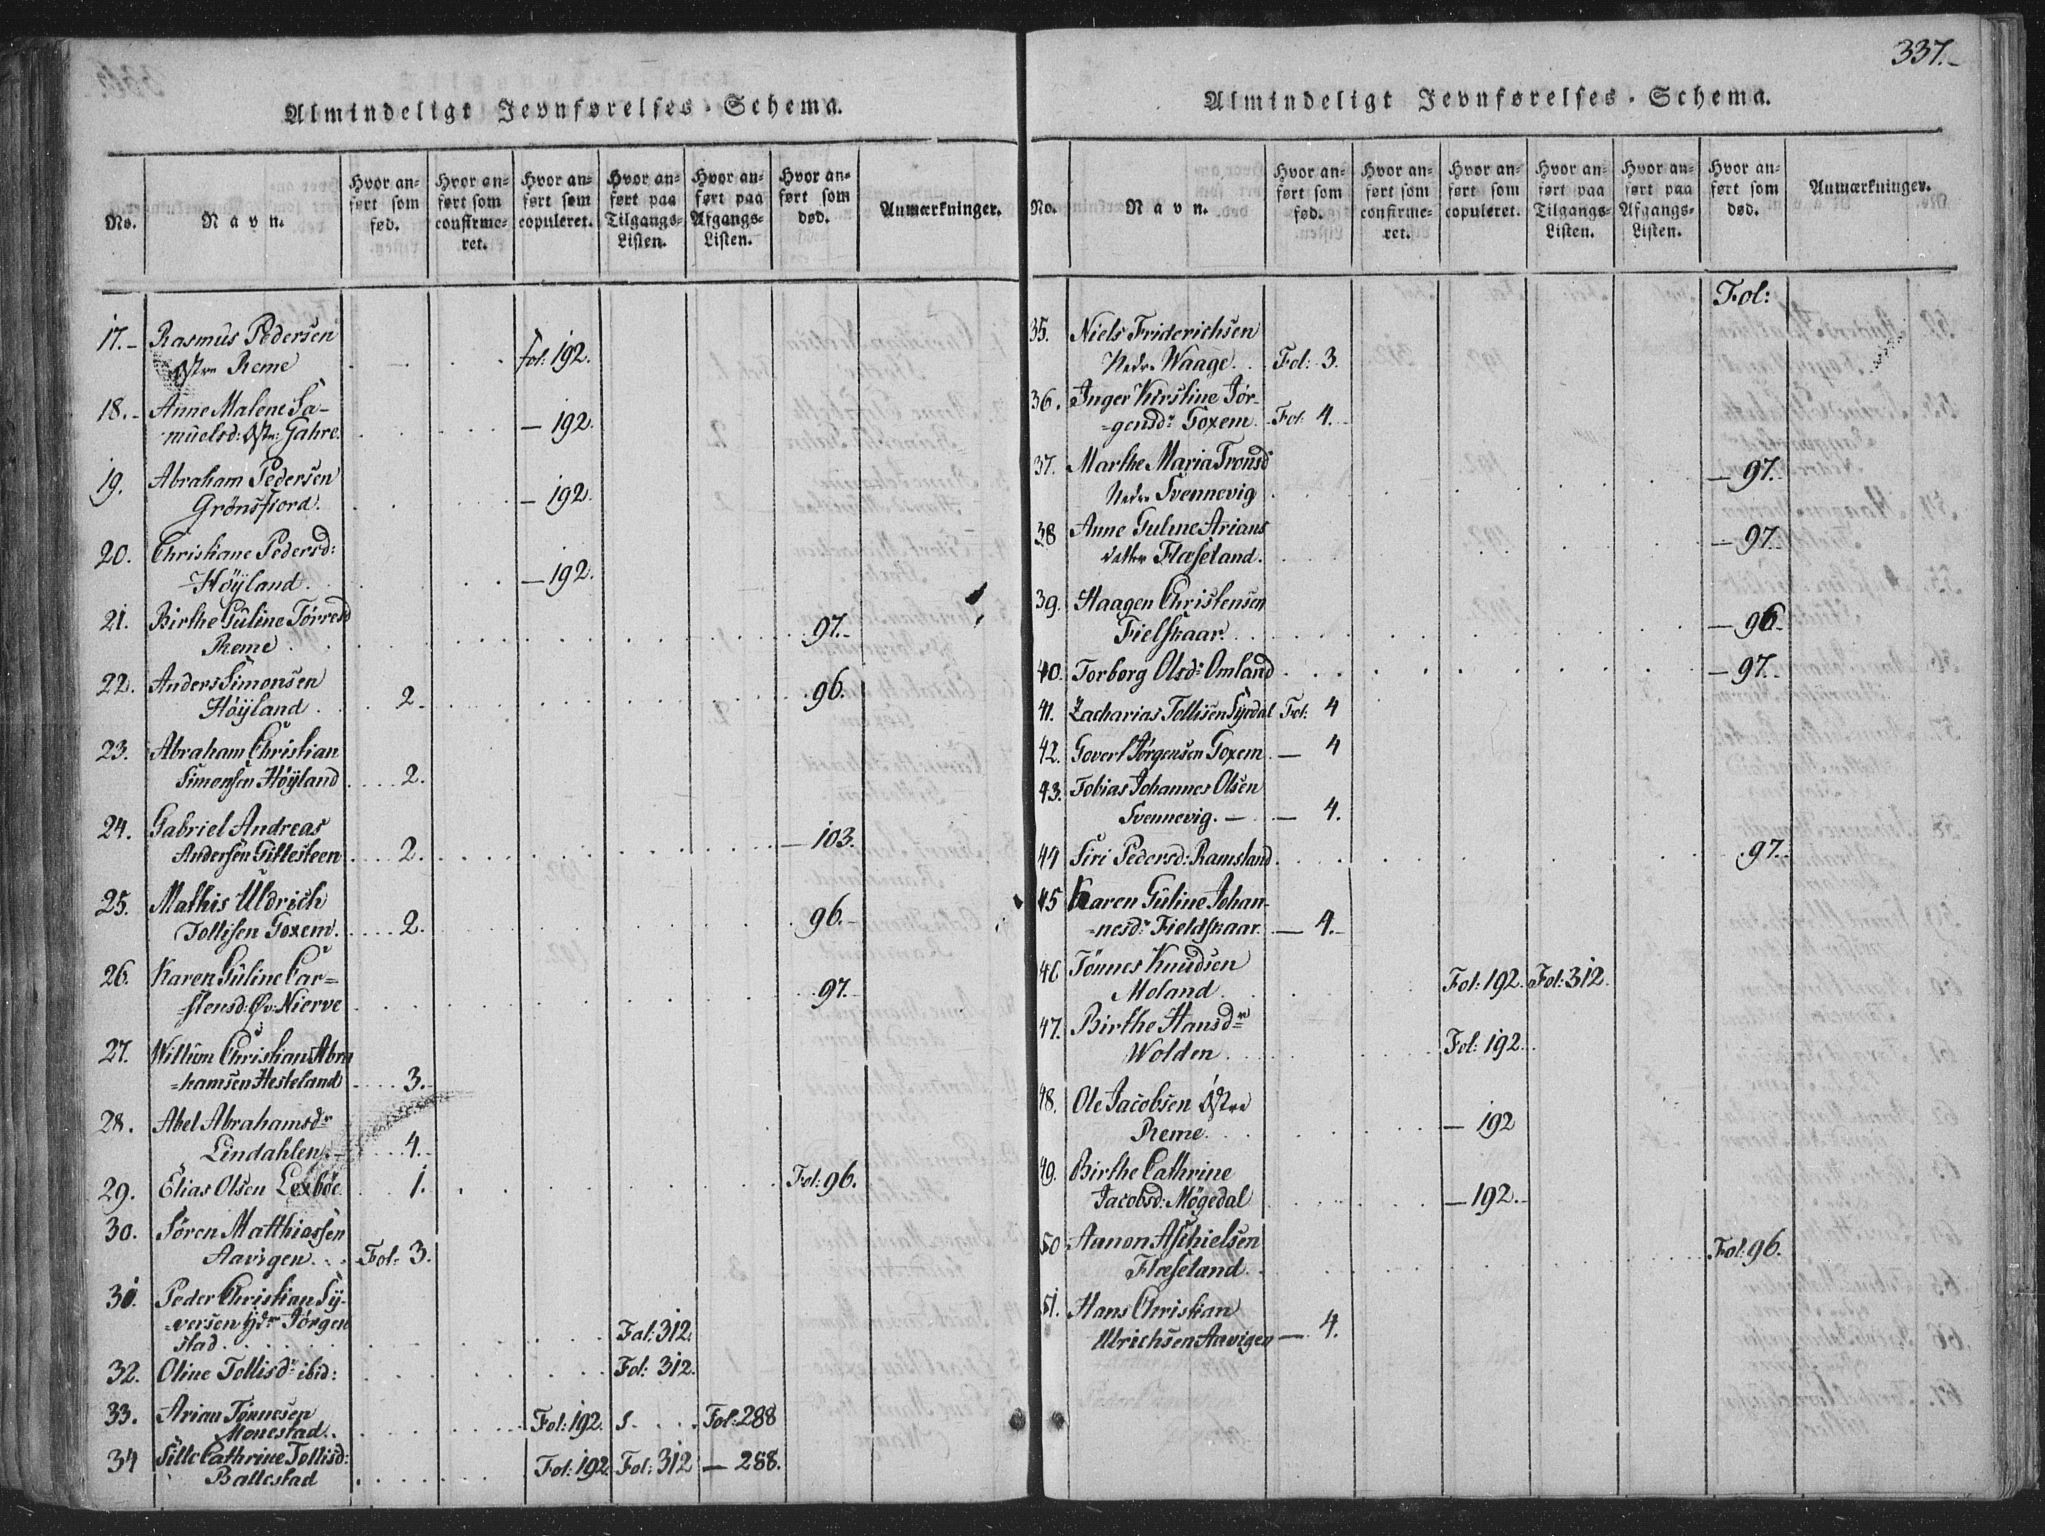 Almindeligt Jevnførelses-Schema.
No.
Navn.
Hvor anført som fød.
Hvor anført som confirmeret.
Hvor anført som copuleret.
Hvor anført paa Tilgangs-Listen.
Hvor anført paa Afgangs-Listen.
Hvor anført som død.
Anmærkninger.
17.- Rasmus Pedersen
Østre Reme . . . . fol: 192.
18.- Anne Malene Sa-
muelsd: Østr: Gahre. — 192.
19. Abraham Pedersen
Grønsfjord. — 192.
20. Christiane Pedersd:
Høÿland. — 192.
21. Birthe Guline Tørresd
Reme . 97.-
22. Anders Simonsen
Høÿland . 2. 96.
23. Abraham Christian
Simonsen Høÿland . 2.
24. Gabriel Andreas
Andersen Gillesteen . 2. — 103.
25. Mathis Uldrich
Tollisen Goxem. 2. 96.-
26. Karen Guline Car=
=stensd: Øv: Nierve . 97.-
27. Willum Christian Abra
=hamsen Hesteland . 3.
28. Abel Abrahamsdr
Lindahlen.- 4.
29. Elias Olsen Lexbøe 1. Fol: 96.
30. Søren Matthiassen
Aavigen. . . Fol: 3.
31. Peder Christian Sÿ-
versen Ydr Jørgen
stad . Fol: 312.
32. Oline Tollisdr ibid: . Fol: 312.
33. Arian Tønnesen
Monestad. . Fol: 192. Fol: 288
34 Sille Cathrine Tollisd:
Ballestad . Fol: 192 Fol: 312 — 288.
337.-
Almindeligt Jevnførelses-Schema.
No.
Navn.
Hvor anført som fød.
Hvor anført som confirmeret.
Hvor anført som copuleret.
Hvor anført paa Tilgangs-Listen.
Hvor anført paa Afgangs-Listen.
Hvor anført som død.
Anmærkninger.
Fol:
35. Niels Friderichsen
Nedr Waage. . Fol: 3.
36. Inger Kirstine Jør-
=gensdr Goxem. Fol: 4.
37. Marthe Maria Tronsd
Nedr Svennevig . — 97.
38 Anne Guline Arians
datter Flæseland. — 97.
39. Haagen Christensen
Fielskaar. . — 96.
40. Torborg Olsdr Omland . — 97.
41. Zacharias Tollisen Syrdal Fol: 4
42. Govert Jørgensen Goxem. — 4
43. Tobias Johannes Olsen
Svennevig. — — 4.
44 Siri Pedersd: Ramsland . 97.
45 Karen Guline Johan-
=nesdr Fieldskaar. — 4.-
46 Tönnes Knudsen
Moland . Fol: 192. Fol: 312.
47. Birthe Hansdr
Wolden . Fol: 192.
48. Ole Jacobsen Østre
Reme. . — 192
49. Birthe Cathrine
Jacobsd: Møgedal . — 192.
50 Aanon Aschielsen
Flæseland. . Fol: 96.
51. Hans Christian
Ulrichsen Aavigen — 4.